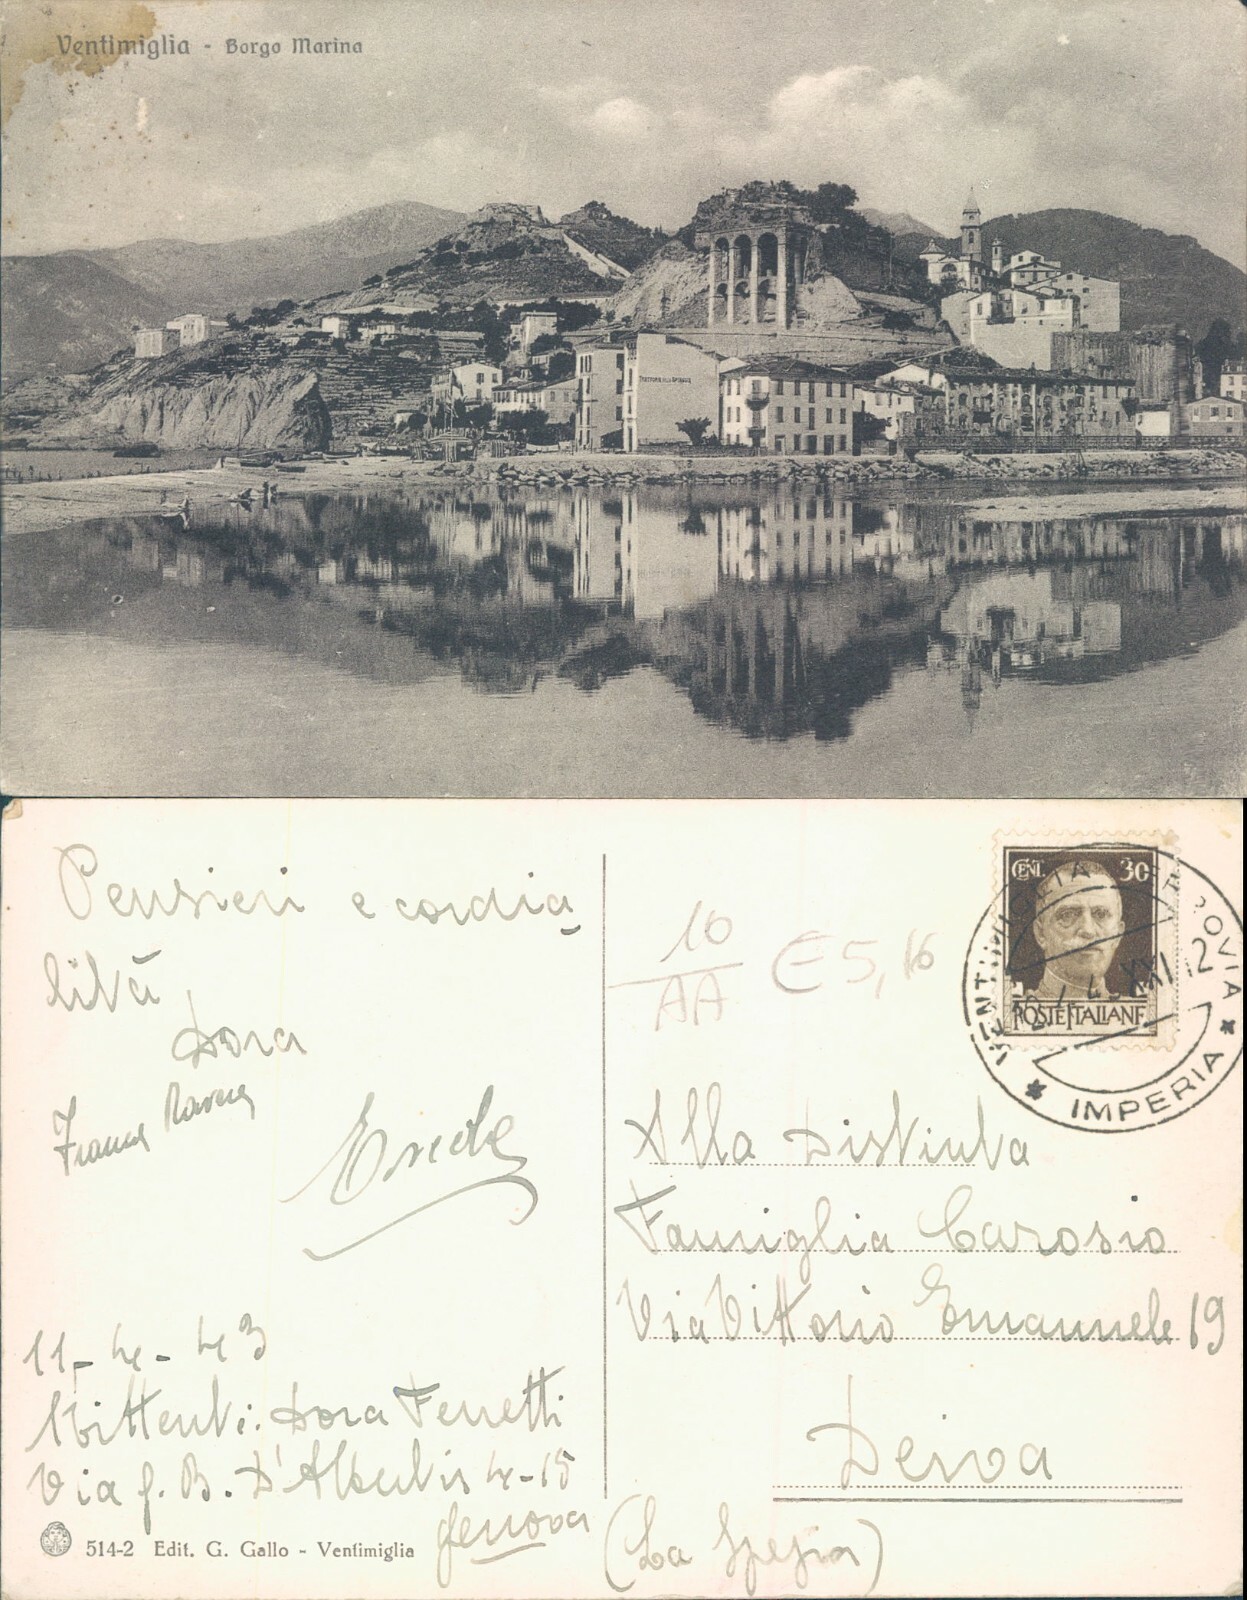 Ventimiglia - Borgo Marina
Pensieri e cordia
lità
Dora
Franca
Via G. B. D'Albertis 4-15
Genova
11-4-43
Mittenti: Dora Ferretti
514-2 Edit. G. Gallo - Ventimiglia
10
AA
€ 5,16
CENT. 30
POSTE ITALIANE
VENTIMIGLIA FERROVIA
* IMPERIA *
Alla Distinta
Famiglia Carosio
Via Vittorio Emanuele 19
Deiva
(La Spezia)